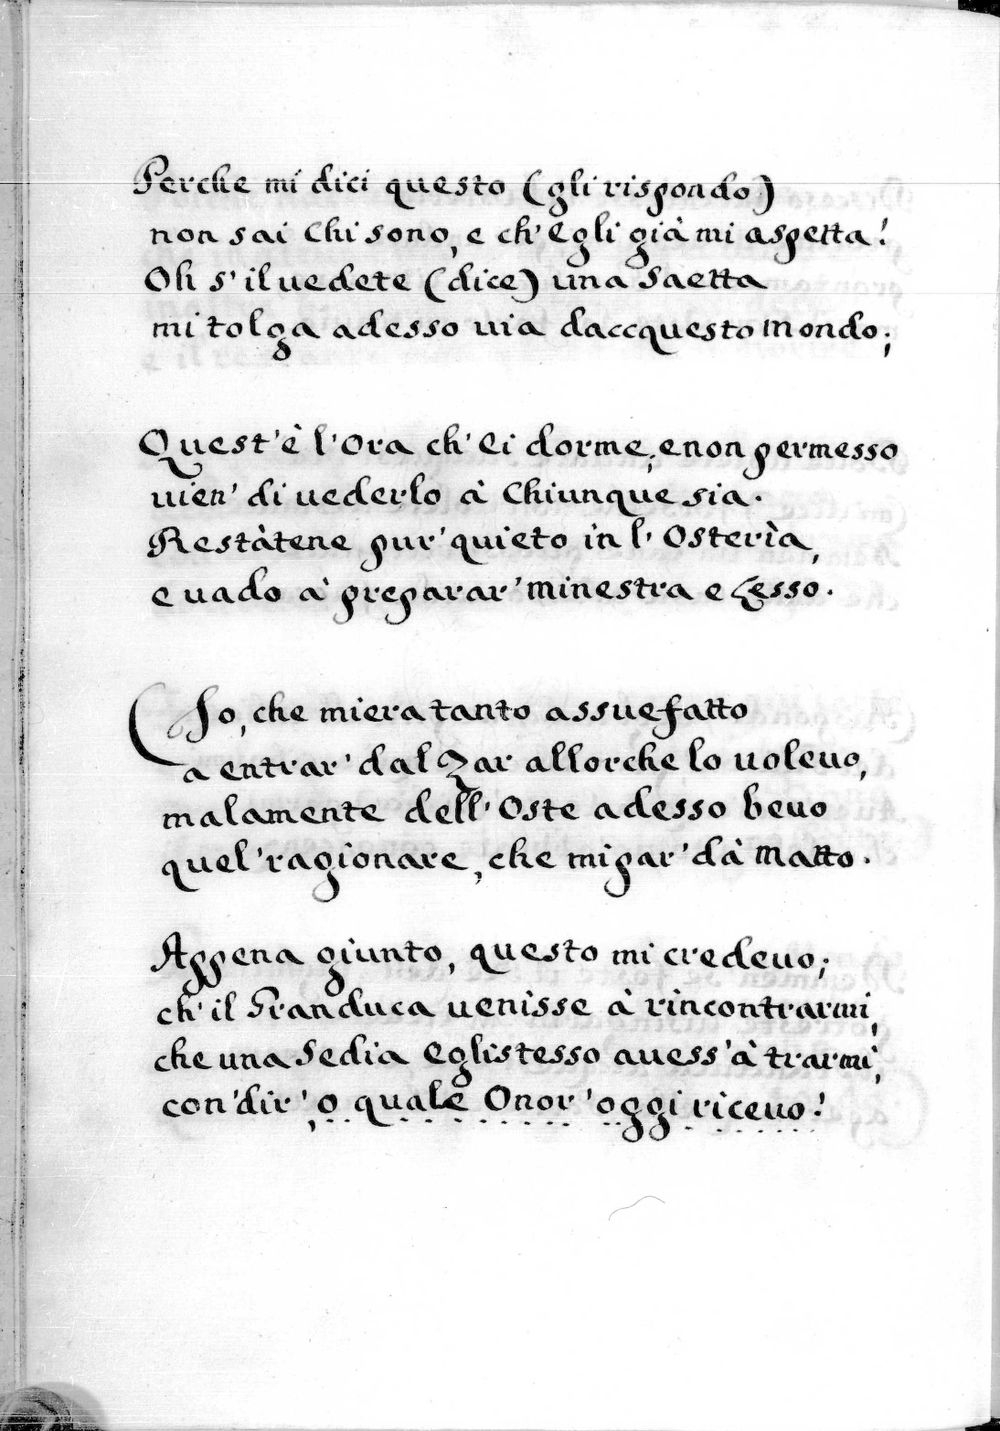 Perche mi dici questo (gli rispondo)
non sai Chi sono, e ch' Egli già mi aspetta!
Oh s' il uedete (dice) una Saetta
mi tolga adesso uia daccquesto Mondo;
Quest' è l' Ora ch' Ei dorme; e non permesso
uien' di uederlo à Chiunque sia.
Restàtene pur' quieto in l' Osterìa,
e uado à preparar' Minestra e Lesso.
Io, che mi era tanto assuefatto
a entrar' dal Zar allorche lo uoleuo,
malamente dell' Oste adesso beuo
quel' ragionare, che mi par' dà Matto.
Appena giunto, questo mi credeuo;
ch' il Granduca uenisse à rincontrarmi,
che una Sedia Egli stesso auess' à trarmi,
con' dir', o quale Onor' oggi riceuo!